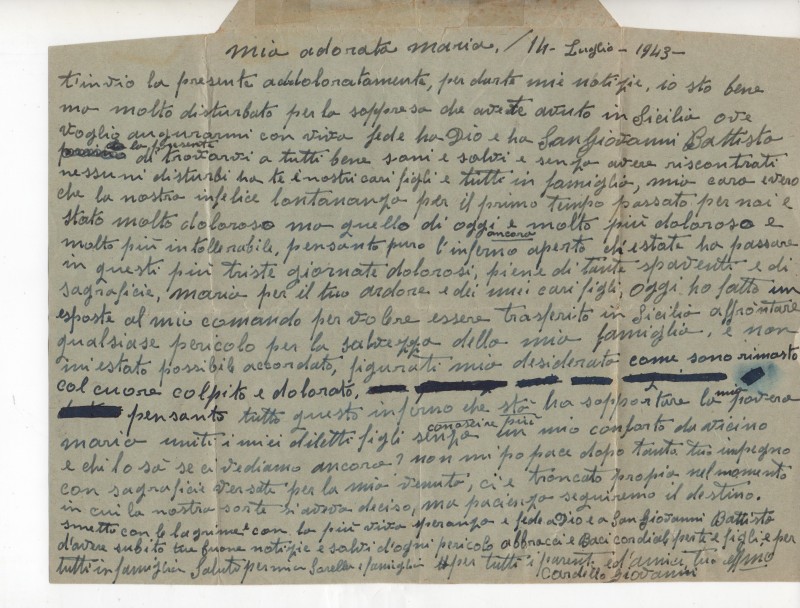 mia adorata maria, / 14 - Luglio - 1943 -
t'invio la presente addoloratamente, per darte mie notizie, io sto bene
ma molto disturbato per la soppresa che avete avuto in Sicilia ove
voglio augurarmi con viva fede ha Dio e ha San Giovanni Battista
la presente
di trovarvi a tutti bene sani e salvi e senza avere riscontrati
nessuni disturbi ha te i nostri cari figli e tutti in famiglia, mia cara evero
che la nostra infelice lontananza per il primo tempo passato per noi e
stato molto doloroso ma quello di oggi è molto più doloroso e
ancora
molto più intollerabile, pensanto puro l'inferno aperto ch'estate ha passare
in questi più triste giornate dolorosi, piene di tante spaventi e di
sagraficie, maria per il tuo ardore e dei miei cari figli, oggi ho fatto un
esposte al mio comando per volere essere trasferito in Sicilia affrontare
qualsiase pericolo per la salvezza della mia famiglia, e non
mi estato possibile accordato, figurati mia desiderata come sono rimasto
col cuore colpito e dolorato.
pensanto tutto questi inferno che sta ha sopportare la mia povera
maria uniti i miei diletti figli senza conoscire più un mio conforto da vicino
e chi lo sà se ci vediamo ancora? non mi po pace dopo tanto tuo impegno
con sagraficie versate per la mia venuta, ci e troncato propia nel momento
in cui la nostra sorte s'aveva deciso, ma pacienza seguiremo il destino.
smetto con le lagrime e con la più viva speranza e fede a Dio e a San Giovanni Battista
d'avere subito tue buone notizie e salvi d'ogni pericolo abbracci e Baci cordiali per te e figli e per
tutti in famiglia Saluto per mia Sorella e famiglia per tutti i parenti ed'amici, tuo
Cardello Giovanni